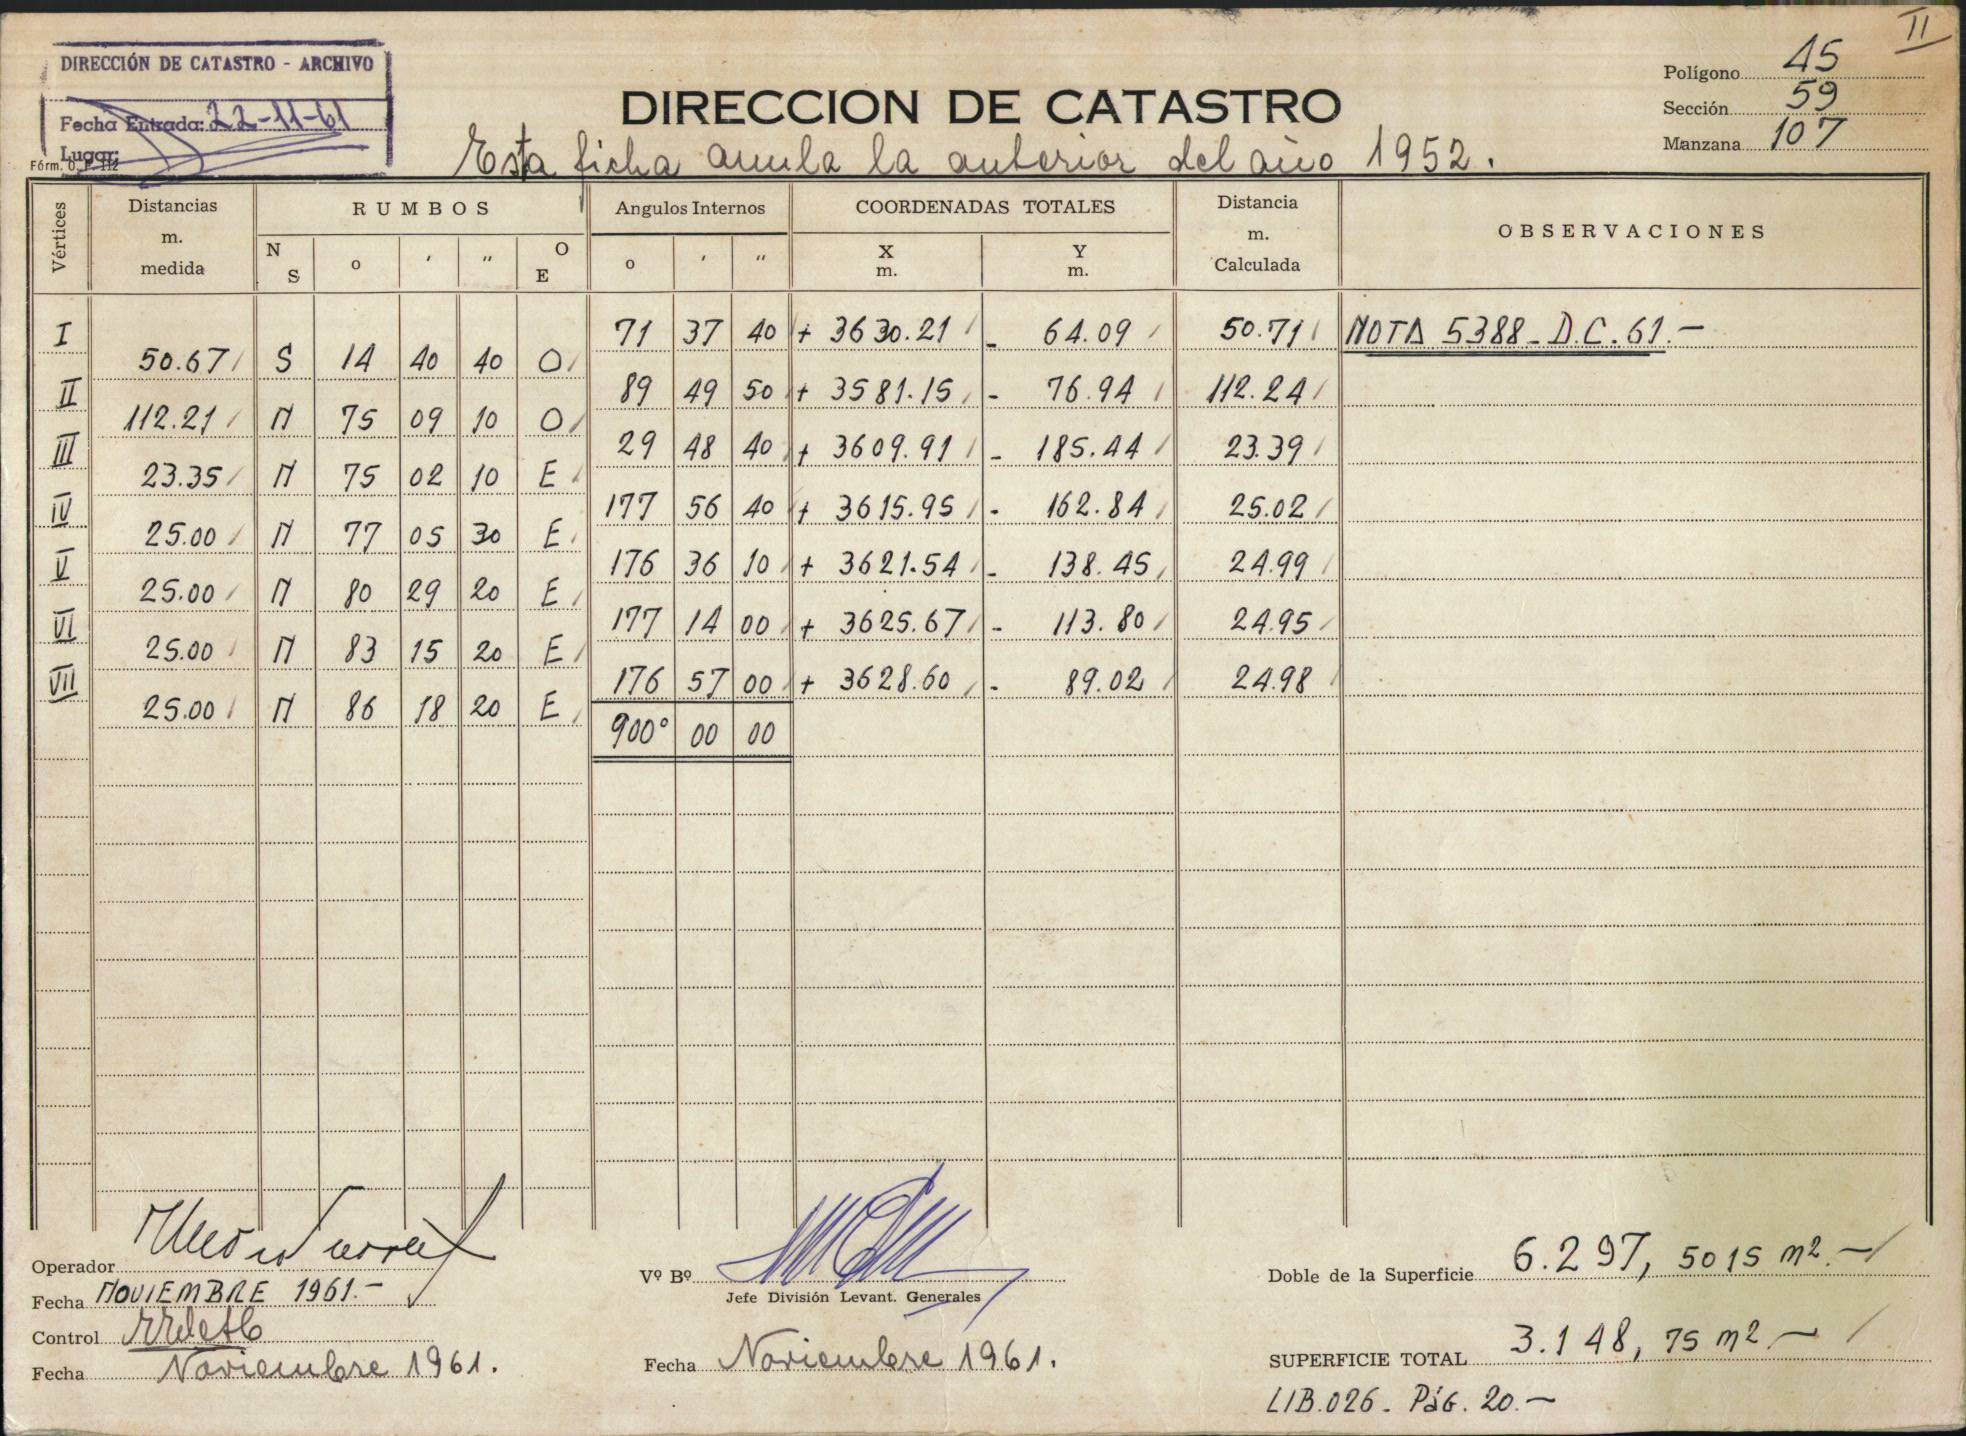 II
DIRECCIÓN DE CATASTRO - ARCHIVO
Fecha Entrada: 22-11-61
Lugar:
Fórm. O. P. 112
DIRECCION DE CATASTRO
Polígono 45
Sección 59
Manzana 107
Esta ficha anula la anterior del año 1952.
Vértices Distancias m. medida RUMBOS Angulos Internos COORDENADAS TOTALES Distancia m. Calculada OBSERVACIONES
N S o ' " O E o ' " X m. Y m.
I 71 37 40 + 3630.21 - 64.09 50.71 NOTA 5388_D.C.61.-
50.67 S 14 40 40 O
II 89 49 50 + 3581.15 - 76.94 112.24
112.21 N 75 09 10 O
III 29 48 40 + 3609.91 - 185.44 23.39
23.35 N 75 02 10 E
IV 177 56 40 + 3615.95 - 162.84 25.02
25.00 N 77 05 30 E
V 176 36 10 + 3621.54 - 138.45 24.99
25.00 N 80 29 20 E
VI 177 14 00 + 3625.67 - 113.80 24.95
25.00 N 83 15 20 E
VII 176 57 00 + 3628.60 - 89.02 24.98
25.00 N 86 18 20 E
900° 00 00
Operador
Fecha NOVIEMBRE 1961.-
Control
Fecha Noviembre 1961.
Vº Bº
Jefe División Levant. Generales
Fecha Noviembre 1961.
Doble de la Superficie 6.297,5015 m2.-
SUPERFICIE TOTAL 3.148,75 m2-
LIB.026_ Pág. 20.-